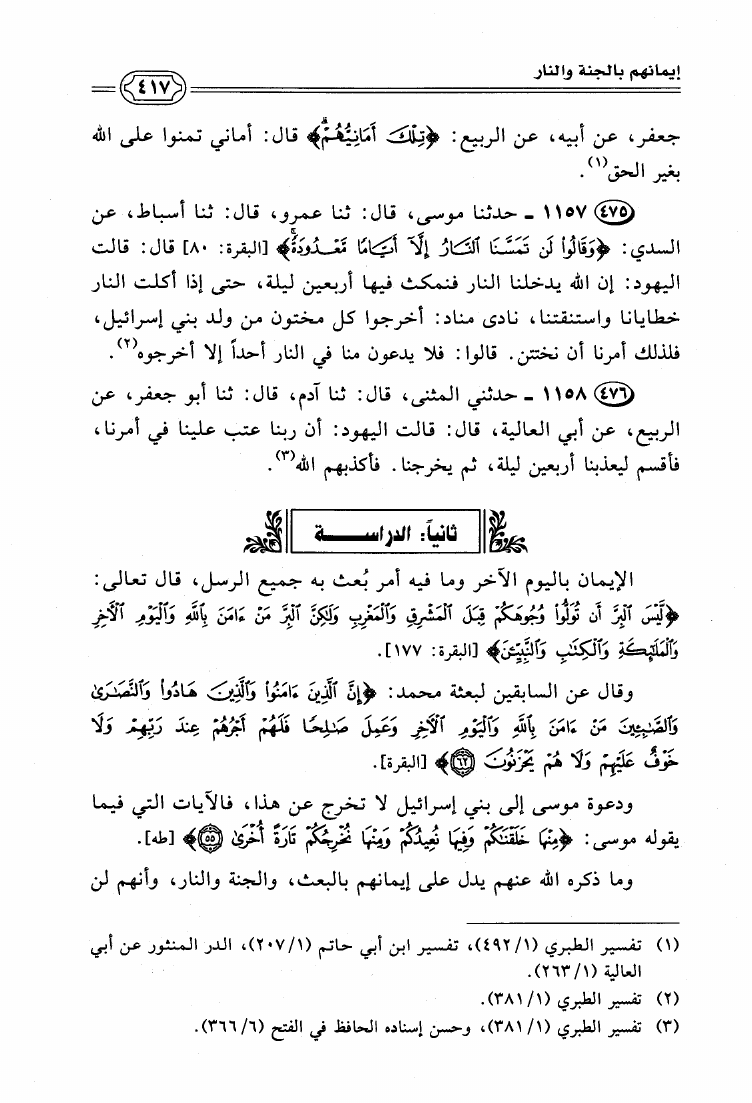 إيمانهم بالجنة والنار
٤١٧
جعفر، عن أبيه، عن الربيع: ﴿تِلْكَ أَمَانِيُّهُمْۗ﴾ قال: أماني تمنوا على الله
بغير الحق(١).
(٤٧٥) ١١٥٧ ـ حدثنا موسى، قال: ثنا عمرو، قال: ثنا أسباط، عن
السدي: ﴿وَقَالُواْ لَن تَمَسَّنَا ٱلنَّارُ إِلَّآ أَيَّامًا مَّعْدُودَةًۚ﴾ [البقرة: ٨٠] قال: قالت
اليهود: إن الله يدخلنا النار فنمكث فيها أربعين ليلة، حتى إذا أكلت النار
خطايانا واستنقتنا، نادى مناد: أخرجوا كل مختون من ولد بني إسرائيل،
فلذلك أمرنا أن نختتن. قالوا: فلا يدعون منا في النار أحداً إلا أخرجوه(٢).
(٤٧٦) ١١٥٨ ـ حدثني المثنى، قال: ثنا آدم، قال: ثنا أبو جعفر، عن
الربيع، عن أبي العالية، قال: قالت اليهود: أن ربنا عتب علينا في أمرنا،
فأقسم ليعذبنا أربعين ليلة، ثم يخرجنا. فأكذبهم الله(٣).
ثانياً: الدراســــــة
الإيمان باليوم الآخر وما فيه أمر بُعث به جميع الرسل، قال تعالى:
﴿لَّيْسَ ٱلْبِرَّ أَن تُوَلُّواْ وُجُوهَكُمْ قِبَلَ ٱلْمَشْرِقِ وَٱلْمَغْرِبِ وَلَٰكِنَّ ٱلْبِرَّ مَنْ ءَامَنَ بِٱللَّهِ وَٱلْيَوْمِ ٱلْأَخِرِ
وَٱلْمَلَٰٓئِكَةِ وَٱلْكِتَٰبِ وَٱلنَّبِيِّـۧنَ﴾ [البقرة: ١٧٧].
وقال عن السابقين لبعثة محمد: ﴿إِنَّ ٱلَّذِينَ ءَامَنُواْ وَٱلَّذِينَ هَادُواْ وَٱلنَّصَٰرَىٰ
وَٱلصَّٰبِـِٔينَ مَنْ ءَامَنَ بِٱللَّهِ وَٱلْيَوْمِ ٱلْأَخِرِ وَعَمِلَ صَٰلِحًا فَلَهُمْ أَجْرُهُمْ عِندَ رَبِّهِمْ وَلَا
خَوْفٌ عَلَيْهِمْ وَلَا هُمْ يَحْزَنُونَ ٦٢﴾ [البقرة].
ودعوة موسى إلى بني إسرائيل لا تخرج عن هذا، فالآيات التي فيما
يقوله موسى: ﴿مِنْهَا خَلَقْنَٰكُمْ وَفِيهَا نُعِيدُكُمْ وَمِنْهَا نُخْرِجُكُمْ تَارَةً أُخْرَىٰ ٥٥﴾ [طه].
وما ذكره الله عنهم يدل على إيمانهم بالبعث، والجنة والنار، وأنهم لن
(١) تفسير الطبري (٤٩٢/١)، تفسير ابن أبي حاتم (٢٠٧/١)، الدر المنثور عن أبي
العالية (٢٦٣/١).
(٢) تفسير الطبري (٣٨١/١).
(٣) تفسير الطبري (٣٨١/١)، وحسن إسناده الحافظ في الفتح (٣٦٦/٦).